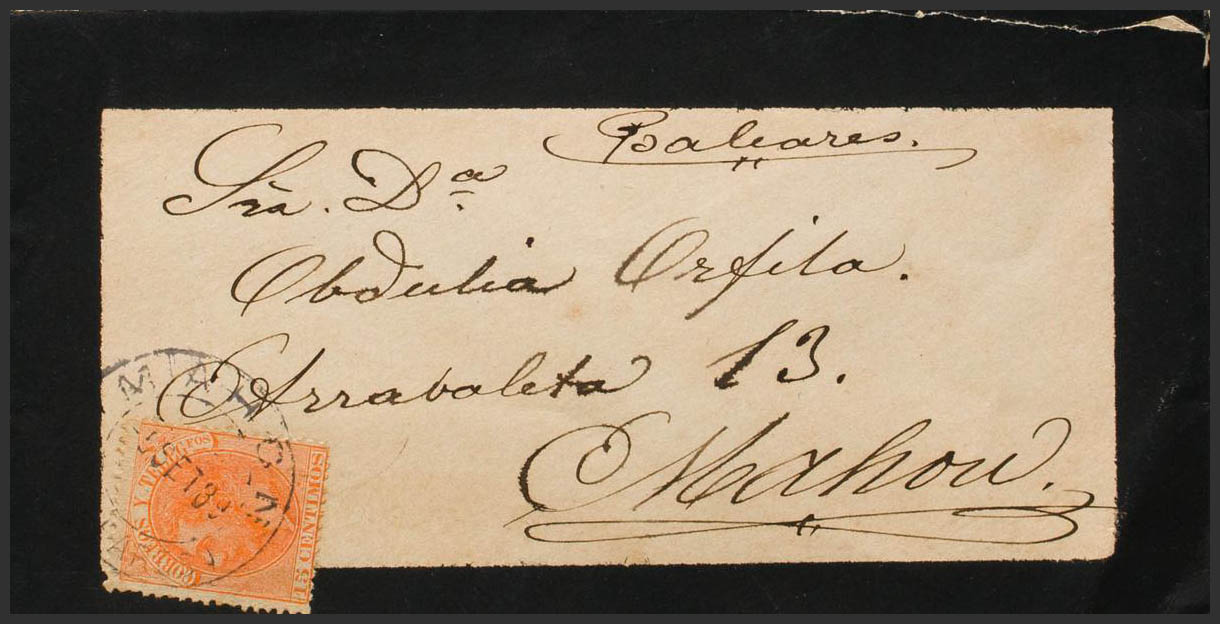 Baleares.
Sra. Dª
Obdulia Orfila.
Arravaleta 13.
Mahon.
CORREOS Y TELEGFOS
15 CENTIMOS